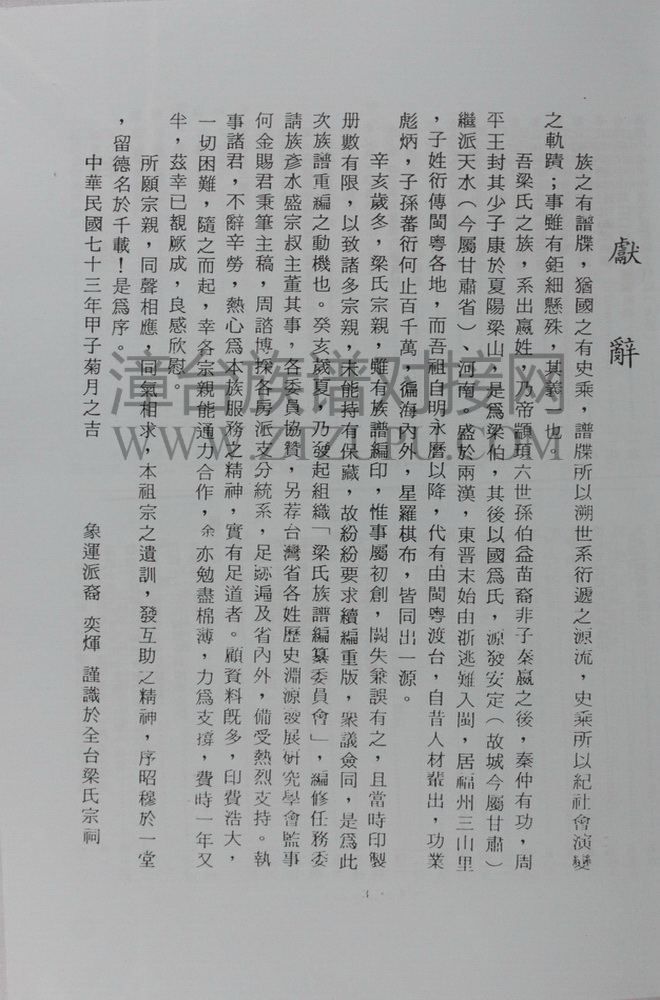 獻辭
族之有譜牒，猶國之有史乘，譜牒所以溯世系衍遞之源流，史乘所以紀社會演變
之軌蹟；事雖有鉅細懸殊，其義一也。
吾梁氏之族，系出嬴姓，乃帝顓頊六世孫伯益苗裔非子秦嬴之後，秦仲有功，周
平王封其少子康於夏陽梁山，是爲梁伯，其後以國爲氏，源發安定（故城今屬甘肅）
繼派天水（今屬甘肅省）、河南。盛於兩漢，東晋末始由浙逃難入閩，居福州三山里
，子姓衍傳閩粵各地，而吾祖自明永曆以降，代有由閩粵渡台，自昔人材輩出，功業
彪炳，子孫蕃衍何止百千萬，徧海內外，星羅棋布，皆同出一源。
辛亥歲冬，梁氏宗親，雖有族譜編印，惟事屬初創，闕失兼誤有之，且當時印製
册數有限，以致諸多宗親，未能持有保藏，故紛紛要求續編重版，衆議僉同，是爲此
次族譜重編之動機也。癸亥歲夏，乃發起組織「梁氏族譜編纂委員會」，編修任務委
請族彥水盛宗叔主董其事，各委員協贊，另荐台灣省各姓歷史淵源發展研究學會監事
何金賜君秉筆主稿，周諮博採各房派支分統系，足跡遍及省內外，備受熱烈支持。執
事諸君，不辭辛勞，熱心爲本族服務之精神，實有足道者。顧資料既多，印費浩大，
一切困難，隨之而起，幸各宗親能通力合作，余亦勉盡棉薄，力爲支撐，費時一年又
半，茲幸已覩厥成，良感欣慰。
所願宗親，同聲相應，同氣相求，本祖宗之遺訓，發互助之精神，序昭穆於一堂
，留德名於千載！是爲序。
中華民國七十三年甲子菊月之吉
象運派裔 奕煇 謹識於全台梁氏宗祠
3
漳台族谱对接网
WWW.ZTZUPU.COM